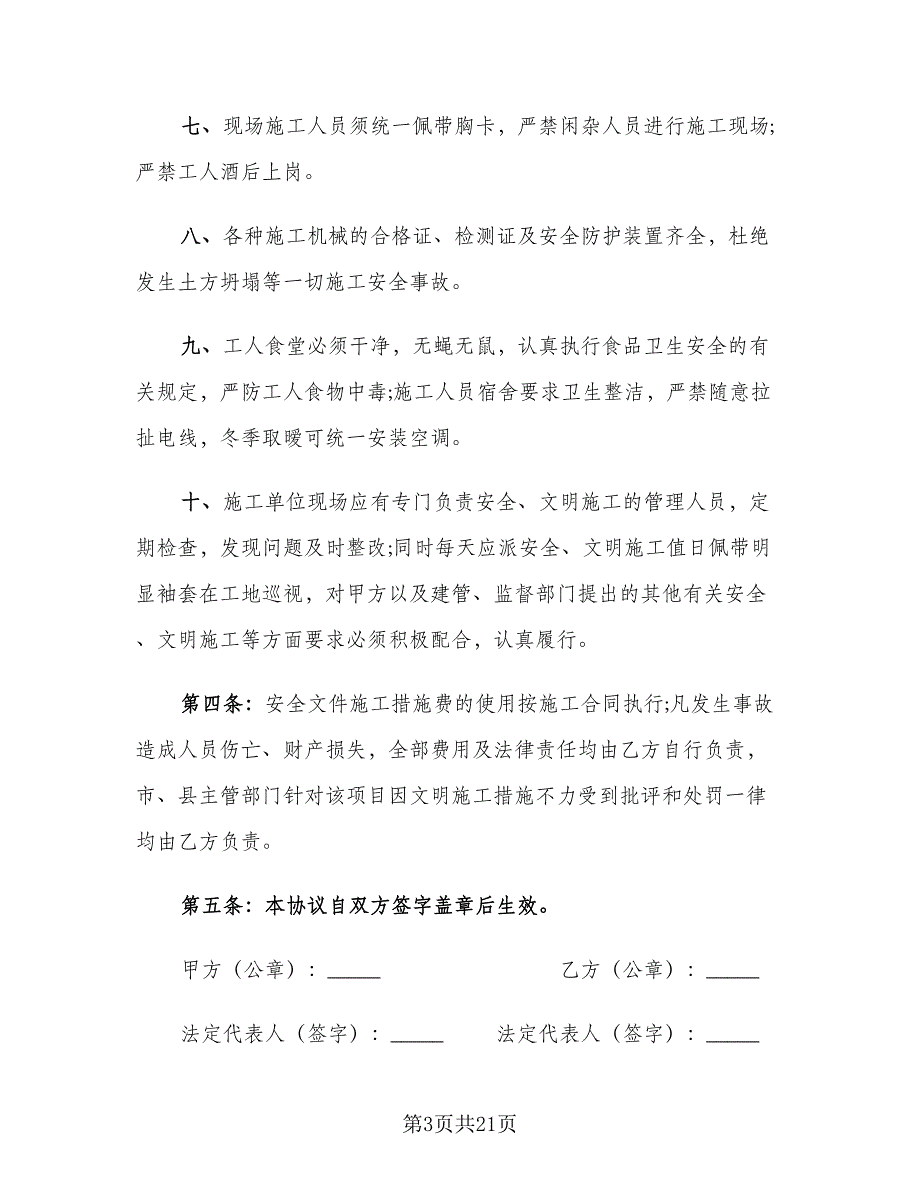 七、现场施工人员须统一佩带胸卡，严禁闲杂人员进行施工现场;
严禁工人酒后上岗。
八、各种施工机械的合格证、检测证及安全防护装置齐全，杜绝
发生土方坍塌等一切施工安全事故。
九、工人食堂必须干净，无蝇无鼠，认真执行食品卫生安全的有
关规定，严防工人食物中毒;施工人员宿舍要求卫生整洁，严禁随意拉
扯电线，冬季取暖可统一安装空调。
十、施工单位现场应有专门负责安全、文明施工的管理人员，定
期检查，发现问题及时整改;同时每天应派安全、文明施工值日佩带明
显袖套在工地巡视，对甲方以及建管、监督部门提出的其他有关安全
、文明施工等方面要求必须积极配合，认真履行。
第四条：安全文件施工措施费的使用按施工合同执行;凡发生事故
造成人员伤亡、财产损失，全部费用及法律责任均由乙方自行负责，
市、县主管部门针对该项目因文明施工措施不力受到批评和处罚一律
均由乙方负责。
第五条：本协议自双方签字盖章后生效。
甲方（公章）：_____ 乙方（公章）：_____
法定代表人（签字）：_____ 法定代表人（签字）：_____
第3页共21页